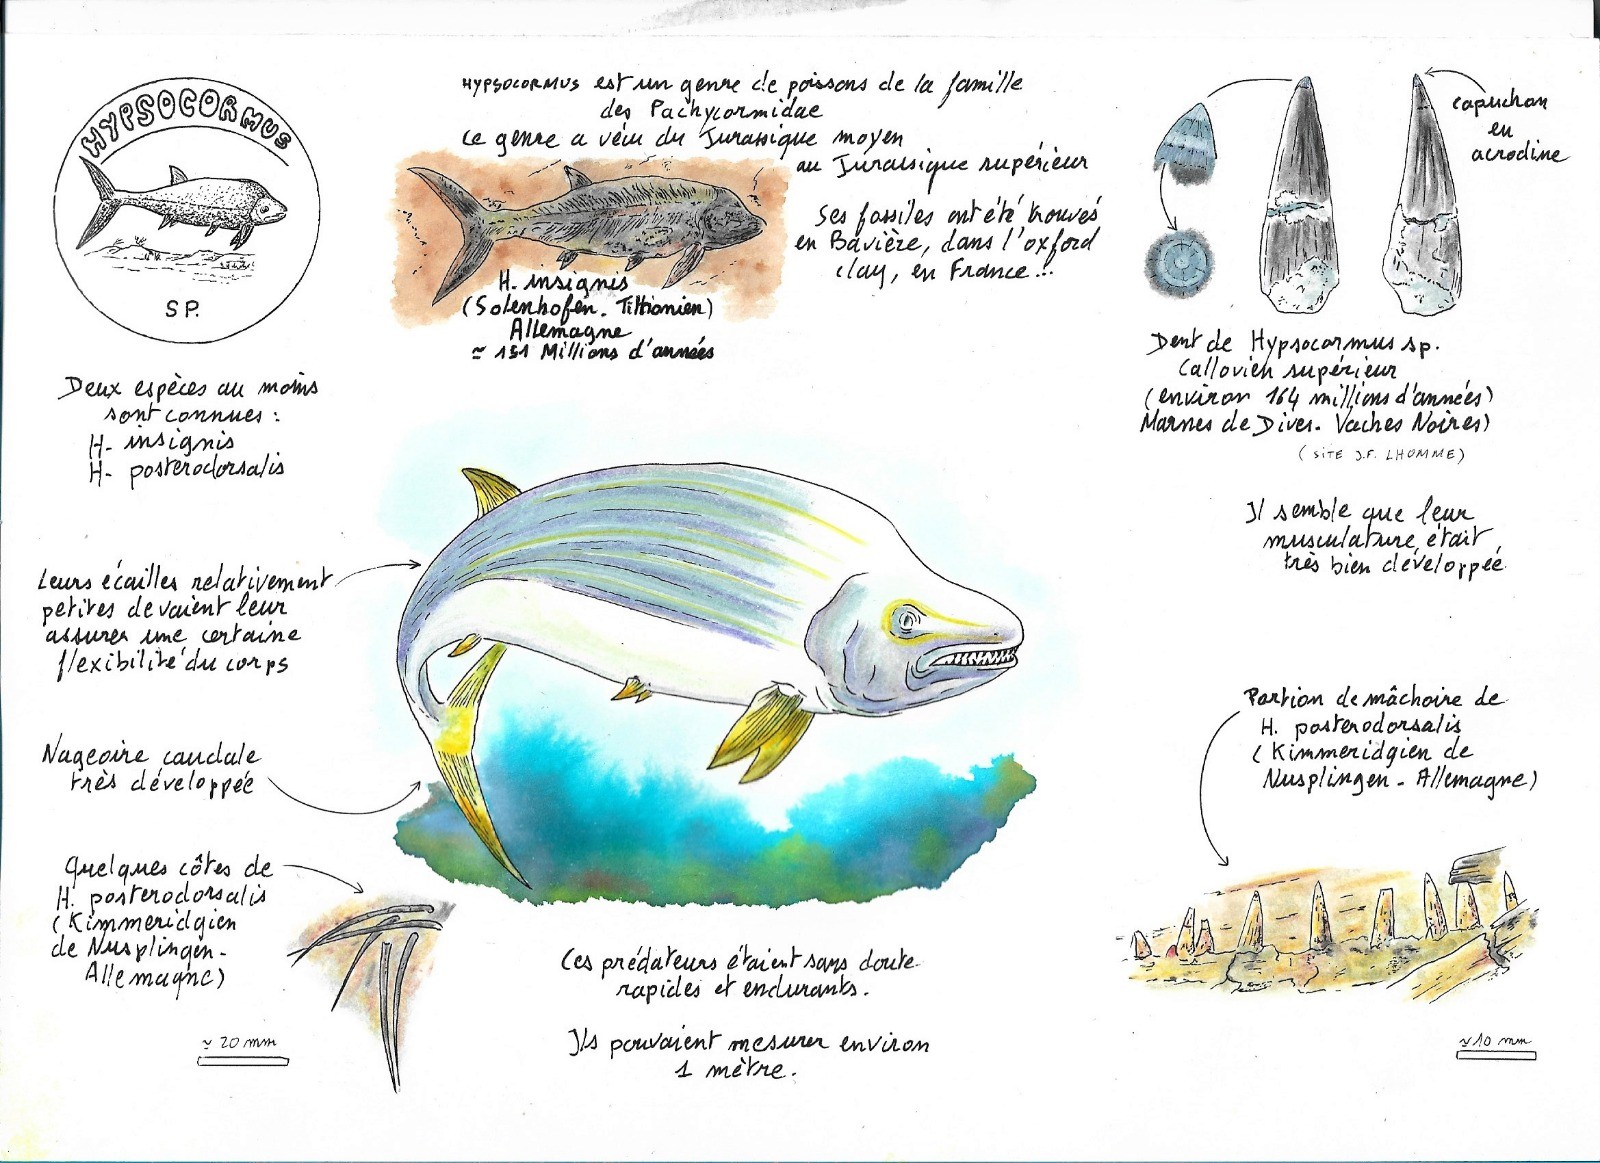 HYPSOCORMUS
SP.
HYPSOCORMUS est un genre de poissons de la famille
des Pachycormidae
Ce genre a vécu du Jurassique moyen
au Jurassique supérieur
Ses fossiles ont été trouvés
en Bavière, dans l'oxford
clay, en France...
H. insignis
(Solenhofen. Tithonien)
Allemagne
≃ 151 Millions d'années
capuchon
en
acrodine
Dent de Hypsocormus sp.
Callovien supérieur
(environ 164 millions d'années)
Marnes de Dives. Vaches Noires)
(SITE J.F. LHOMME)
Deux espèces au moins
sont connues :
H. insignis
H. posterodorsalis
Il semble que leur
musculature était
très bien développée
Leurs écailles relativement
petites devaient leur
assurer une certaine
flexibilité du corps
Nageoire caudale
très développée
Portion de mâchoire de
H. posterodorsalis
(Kimmeridgien de
Nusplingen - Allemagne)
Quelques côtes de
H. posterodorsalis
(Kimmeridgien
de Nusplingen-
Allemagne)
≃ 20 mm
Ces prédateurs étaient sans doute
rapides et endurants.
Ils pouvaient mesurer environ
1 mètre.
≃ 10 mm